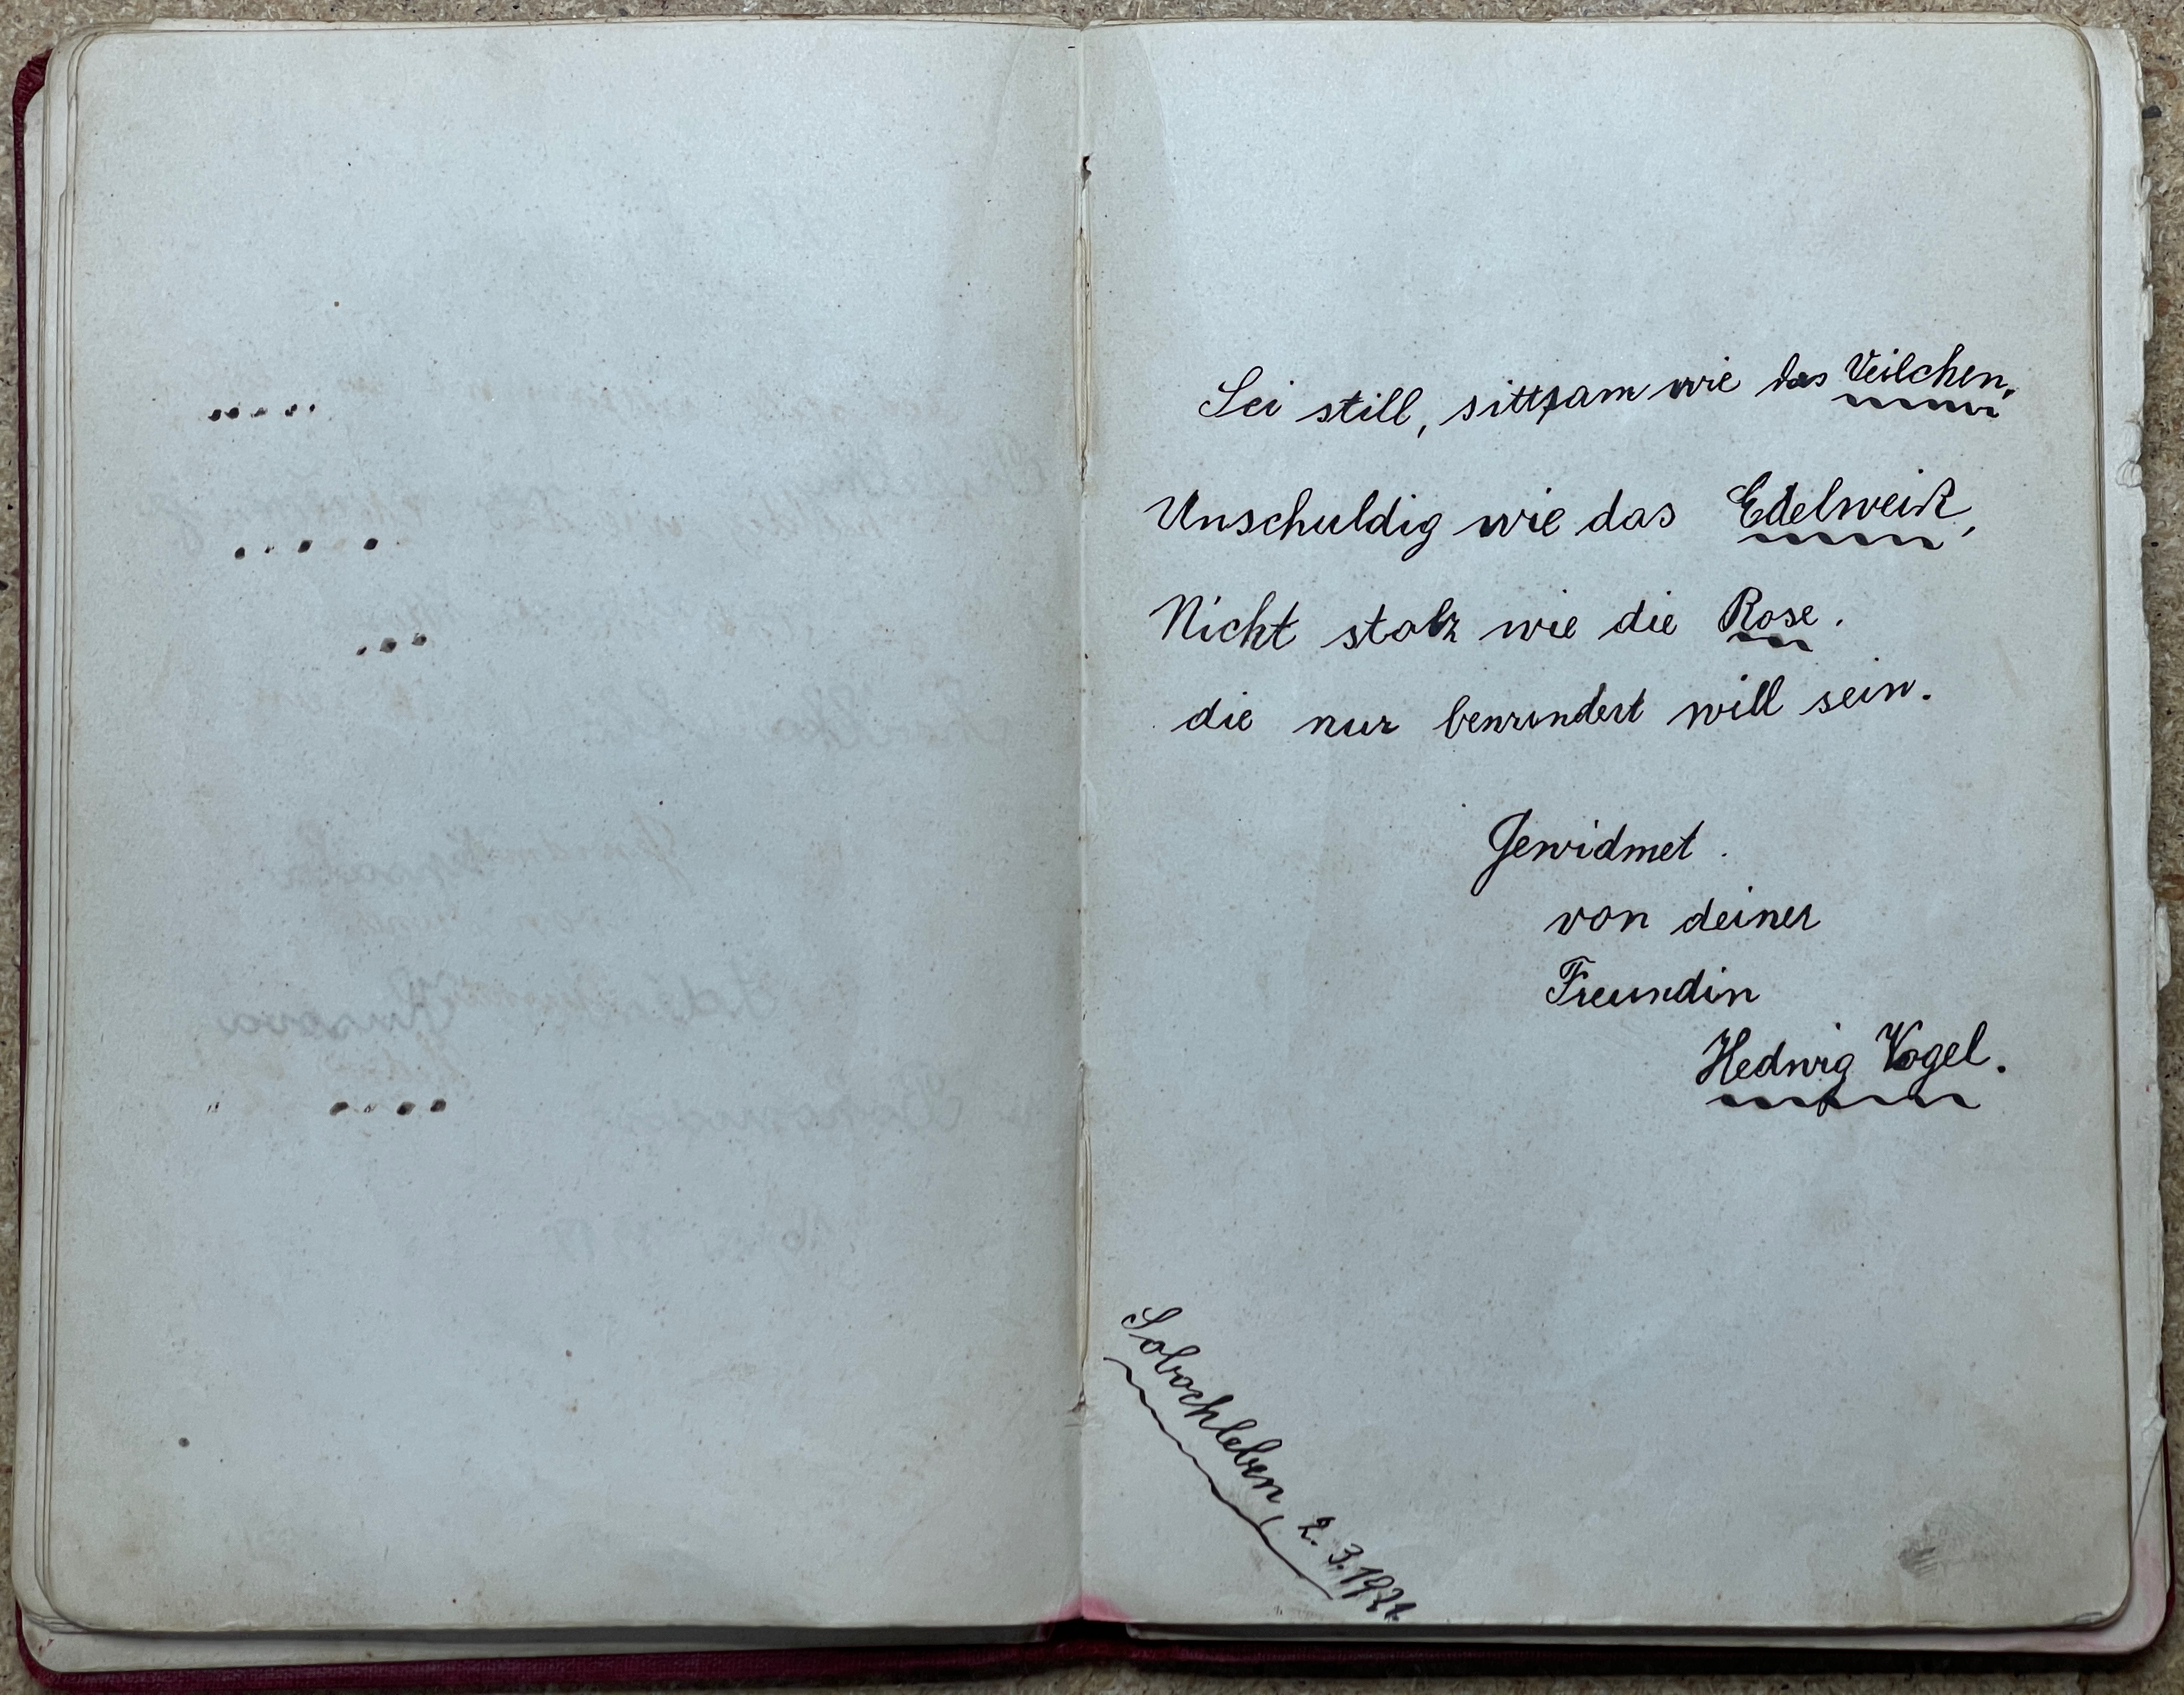 Sei still, sittsam wie das Veilchen,
Unschuldig wie das Edelweiß,
Nicht stolz wie die Rose.
die nur bewundert will sein.
Gewidmet.
von deiner
Freundin
Hedwig Vogel.
Sobochleben, 2. 3.